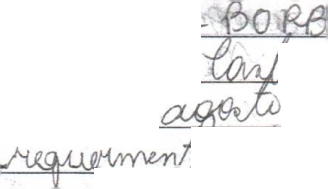 - BORB
agosto
requerment